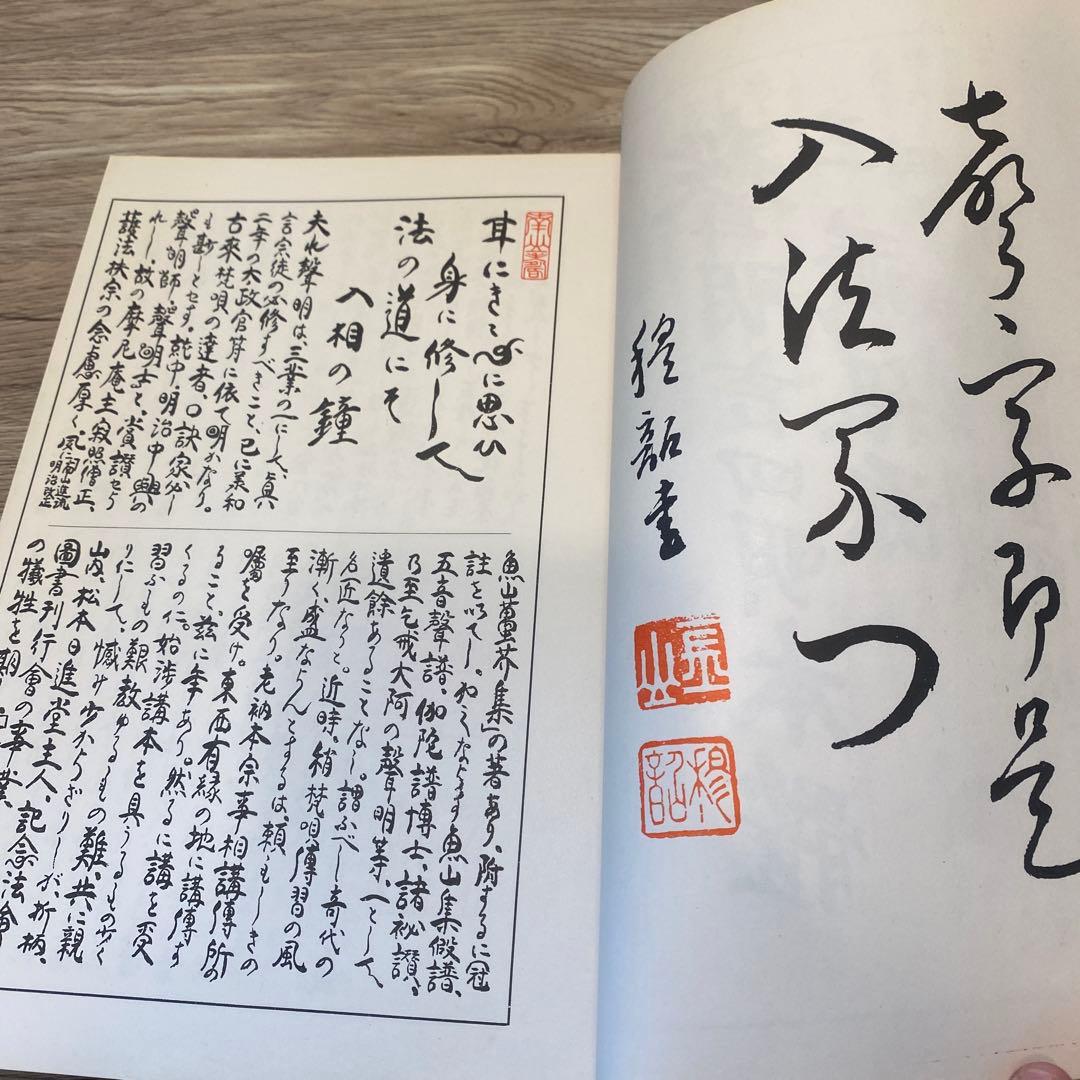 聲字即是
入法界つ
穆韶書
長山
穆韶
耳にきゝ心に思ひ
身に修して
法の道にそ
入相の鐘
夫れ聲明は、三業の一にして、眞
言宗徒の必修すべきこと、已に美和
二年の太政官苻に依て明かなり。
古來梵唄の達者、口訣家少し
も尠しとせず。就中明治中興の
聲明師、聲明士と、賞讃せら
れし、故の摩尼庵主寂照僧正、
護法扶宗の念慮厚く、
明治改正
魚山蠆芥集」の著あり、附するに冠
註を以てし。
五音聲譜、伽陀譜博士、諸祕讃、
乃至乞戒大阿の聲明等、一として、
遺餘あることなし。謂ふべし奇代の
名匠なりと。近時、稍梵唄傳習の風
漸く、盛ならんとするは、頼もしきの
至りなり。老衲本宗事相講傳所の
囑を受け。東西有縁の地に講傳す
ること、茲に年あり。然るに講を受
くるの仁。始渉講本を具うるもの少く
習ふもの艱教ゆるもの難、共に親
りにして、憾み少からざりしが、折柄、
山内、松本日進堂主人、記念法會
圖書刊行會の事業
の犠牲を期